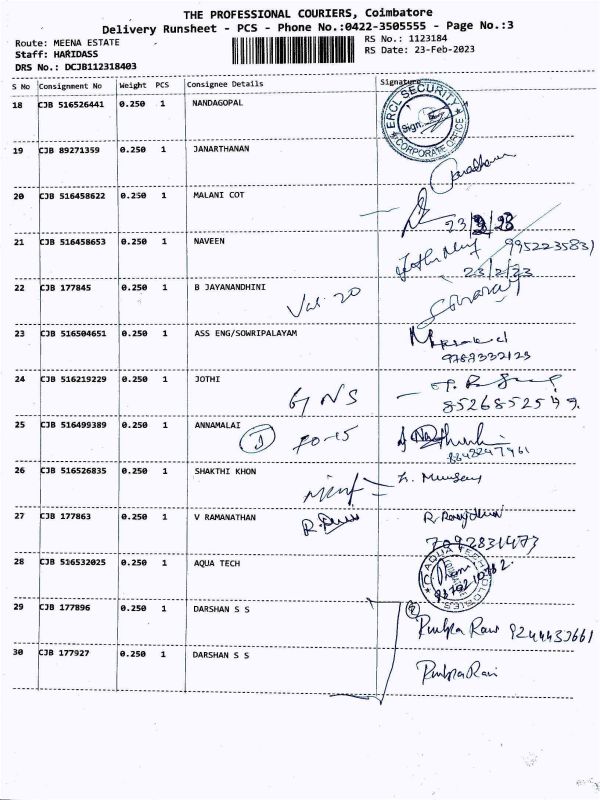 THE PROFESSIONAL COURIERS, Coimbatore
Delivery Runsheet - PCS - Phone No.:0422-3505555 - Page No.:3
Route: MEENA ESTATE RS No.: 1123184
Staff: HARIDASS RS Date: 23-Feb-2023
DRS No.: DCJB112318403
S No Consignment No Weight PCS Consignee Details Signature
18 CJB 516526441 0.250 1 NANDAGOPAL
ERCL SECURITY
Sign:
CORPORATE OFFICE
19 CJB 89271359 0.250 1 JANARTHANAN
20 CJB 516458622 0.250 1 MALANI COT
23/2/23
21 CJB 516458653 0.250 1 NAVEEN
9952235831
23/2/23
22 CJB 177845 0.250 1 B JAYANANDHINI
23 CJB 516504651 0.250 1 ASS ENG/SOWRIPALAYAM
9787332123
24 CJB 516219229 0.250 1 JOTHI
G NS
8526852549.
25 CJB 516499389 0.250 1 ANNAMALAI
70-15
26 CJB 516526835 0.250 1 SHAKTHI KHON
27 CJB 177863 0.250 1 V RAMANATHAN
7092831473
28 CJB 516532025 0.250 1 AQUA TECH
29 CJB 177896 0.250 1 DARSHAN S S
2
30 CJB 177927 0.250 1 DARSHAN S S